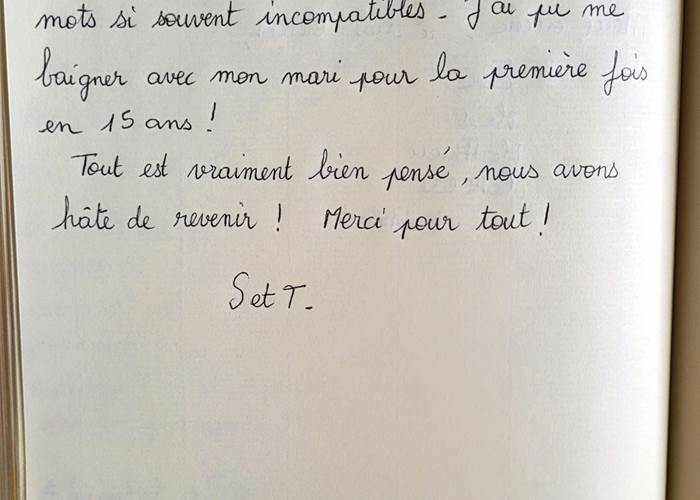 mots si souvent incompatibles. J'ai pu me
baigner avec mon mari pour la première fois
en 15 ans !
Tout est vraiment bien pensé, nous avons
hâte de revenir ! Merci pour tout !
S et T.